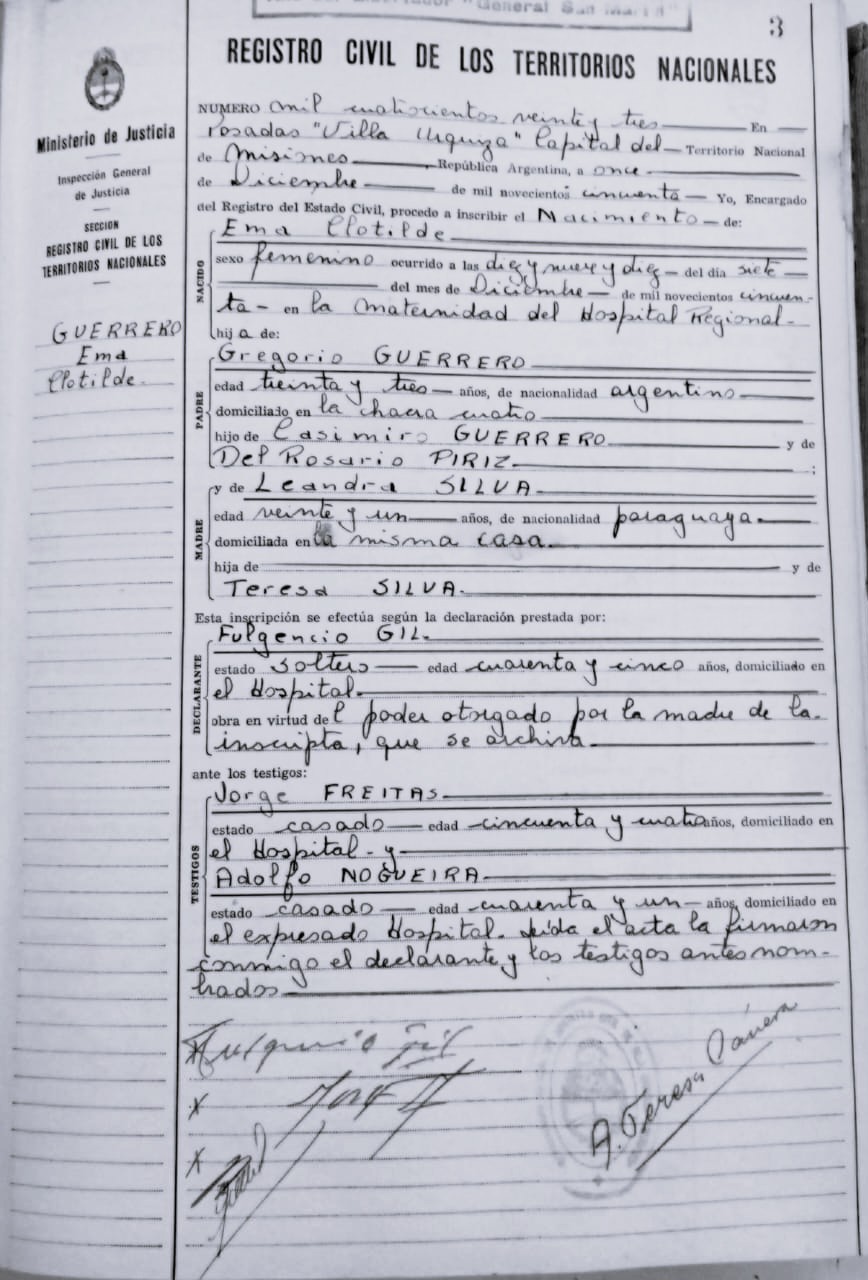 "General San Martín"
3
REGISTRO CIVIL DE LOS TERRITORIOS NACIONALES
Ministerio de Justicia
Inspección General
de Justicia
SECCION
REGISTRO CIVIL DE LOS
TERRITORIOS NACIONALES
GUERRERO
Ema
Clotilde.
NUMERO mil cuatrocientos veinte y tres En
Posadas "Villa Urquiza" Capital del Territorio Nacional
de Misiones República Argentina, a once
de Diciembre de mil novecientos cincuenta Yo, Encargado
del Registro del Estado Civil, procedo a inscribir el Nacimiento de:
NACIDO
Ema Clotilde
sexo femenino ocurrido a las diez y nueve y diez del día siete
del mes de Diciembre de mil novecientos cincuen-
ta - en la Maternidad del Hospital Regional.
hija de:
PADRE
Gregorio GUERRERO
edad treinta y tres años, de nacionalidad argentino
domiciliado en la chacra cuatro
hijo de Casimiro GUERRERO y de
Del Rosario PIRIZ ;
MADRE
y de Leandra SILVA
edad veinte y un años, de nacionalidad paraguaya
domiciliada en la misma casa
hija de y de
Teresa SILVA.
Esta inscripción se efectúa según la declaración prestada por:
DECLARANTE
Fulgencio GIL
estado soltero edad cuarenta y cinco años, domiciliado en
el Hospital.
obra en virtud del poder otorgado por la madre de la
inscripta, que se archiva
ante los testigos:
TESTIGOS
Jorge FREITAS
estado casado edad cincuenta y cuatro años, domiciliado en
el Hospital y
Adolfo NOGUEIRA
estado casado edad cuarenta y un años, domiciliado en
el expresado Hospital. Leída el acta la firmaron
conmigo el declarante y los testigos antes nom-
brados
x
x
x
A. Teresa